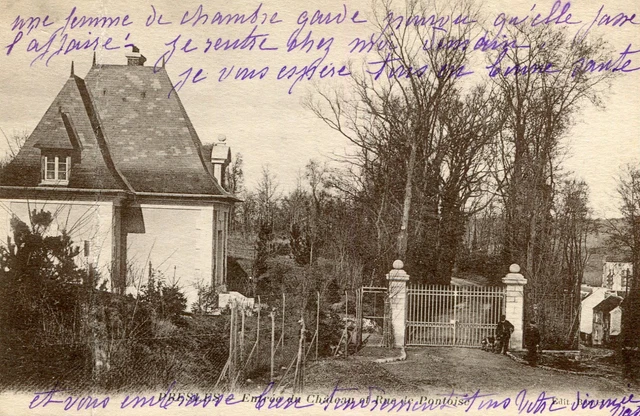 une femme de chambre garde nourou qu'elle fasse
l'affaire! je rentre chez moi demain
je vous espère tous en bonne santé
PRESLES Entrée du Château et Rue de Pontoise
et vous embrasse bien tendrement tous Votre